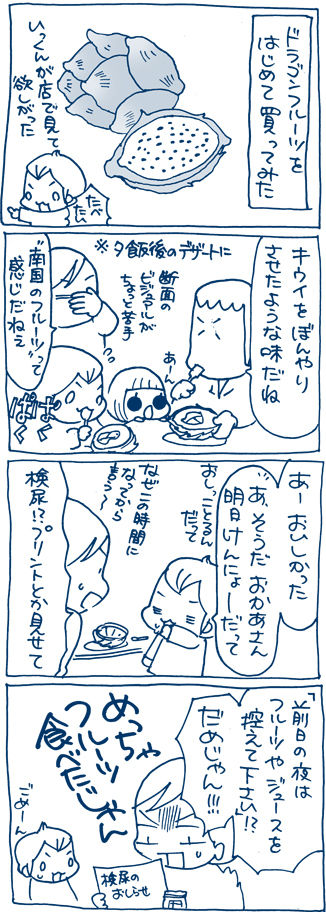 ドラゴンフルーツを
はじめて買ってみた
いっくんが店で見て
欲しがった
たべ
たい
※夕飯後のデザートに
キウイをぼんやり
させたような味だね
断面の
ビジュアルが
ちょっと苦手
あー
“南国のフルーツ”って
感じだねぇ
ぱく
ぱく
あーおいしかった
あ、そうだおかあさん
明日けんにょーだって
おしっことるんだって
なぜこの時間に
なってから
言う〜
検尿!?プリントとか見せて
「前日の夜は
フルーツやジュースを
控えて下さい」!?
だめじゃん!!!
めっちゃ
フルーツ
食べたじゃん
ごめーん
検尿の
おしらせ